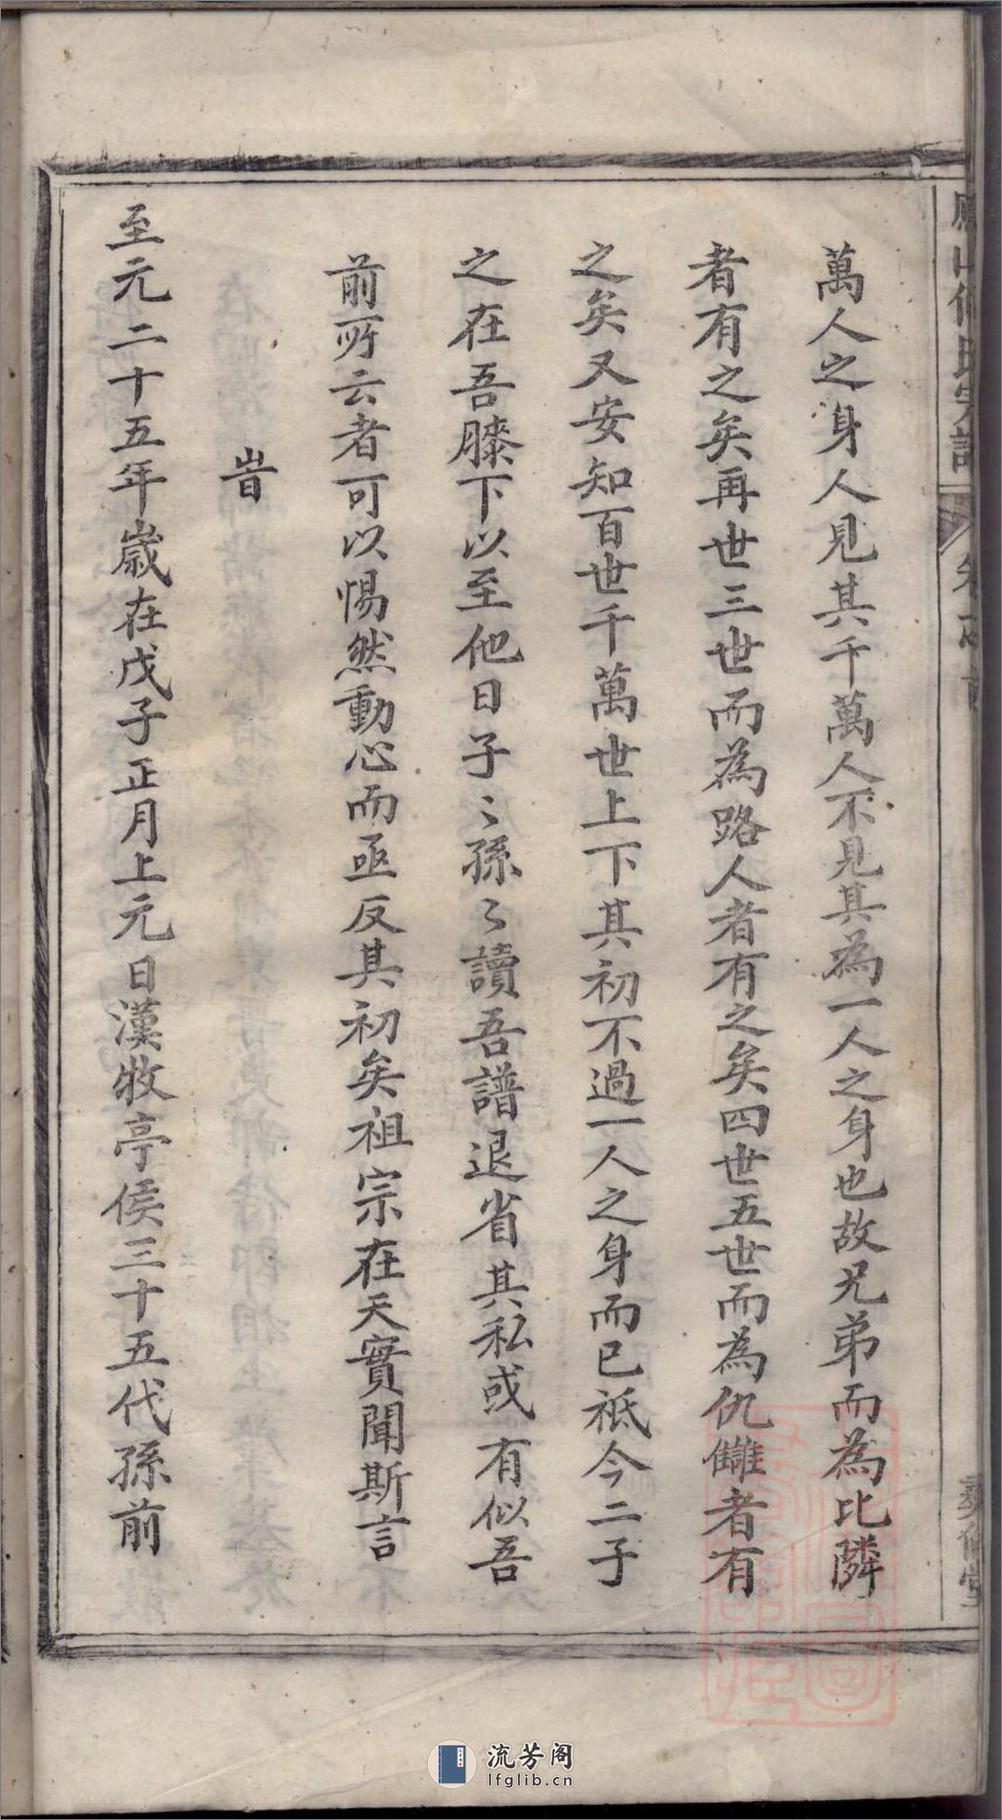 萬人之身人見其千萬人不見其為一人之身也故兄弟而為比隣
者有之矣再世三世而為路人者有之矣四世五世而為仇讎者有
之矣又安知百世千萬世上下其初不過一人之身而已祗今二子
之在吾膝下以至他日子〻孫〻讀吾譜退省其私或有似吾
前所云者可以惕然動心而亟反其初矣祖宗在天實聞斯言
旹
至元二十五年歲在戊子正月上元日漢牧亭侯三十五代孫前
流芳阁
lfglib.cn